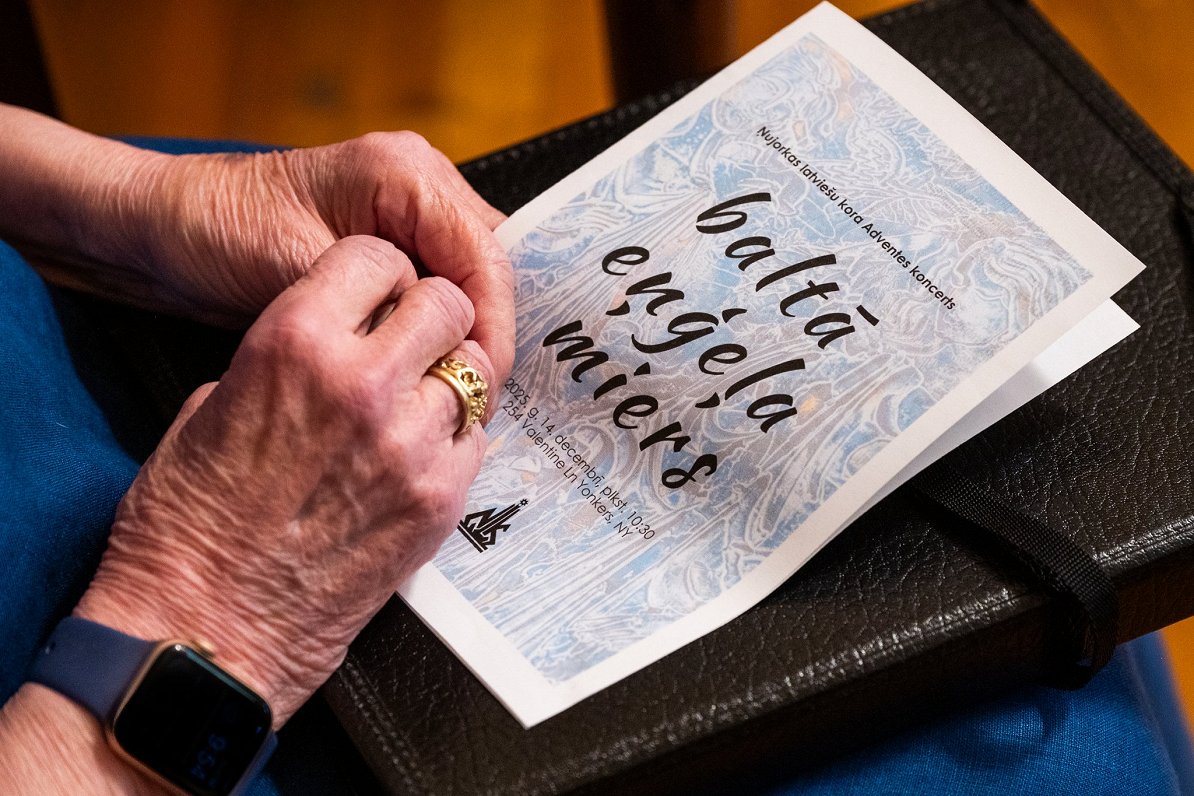 Ņujorkas latviešu kora Adventes koncerts
baltā
eņģeļa
miers
2025. g. 14. decembrī, plkst. 10:30
254 Valentine Ln Yonkers, NY
9:54